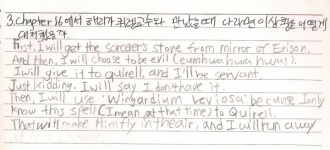 3. Chapter 16에서 해리가 퀴렐교수와 만났을때 나라면 이 상황을 어떻게
대처할까?
First, I will get the sorcerer's stone from mirror of Erison.
And then, I will choose to be evil (eumhwahwahwa!).
I will give it to quirell, and I'll be servant.
Just kidding. I will say I don't have it.
Then, I will use 'Wingardium leviosa' because I only
know this spell (I mean, at that time) to Quirell.
That will make him fly in the air, and I will run away